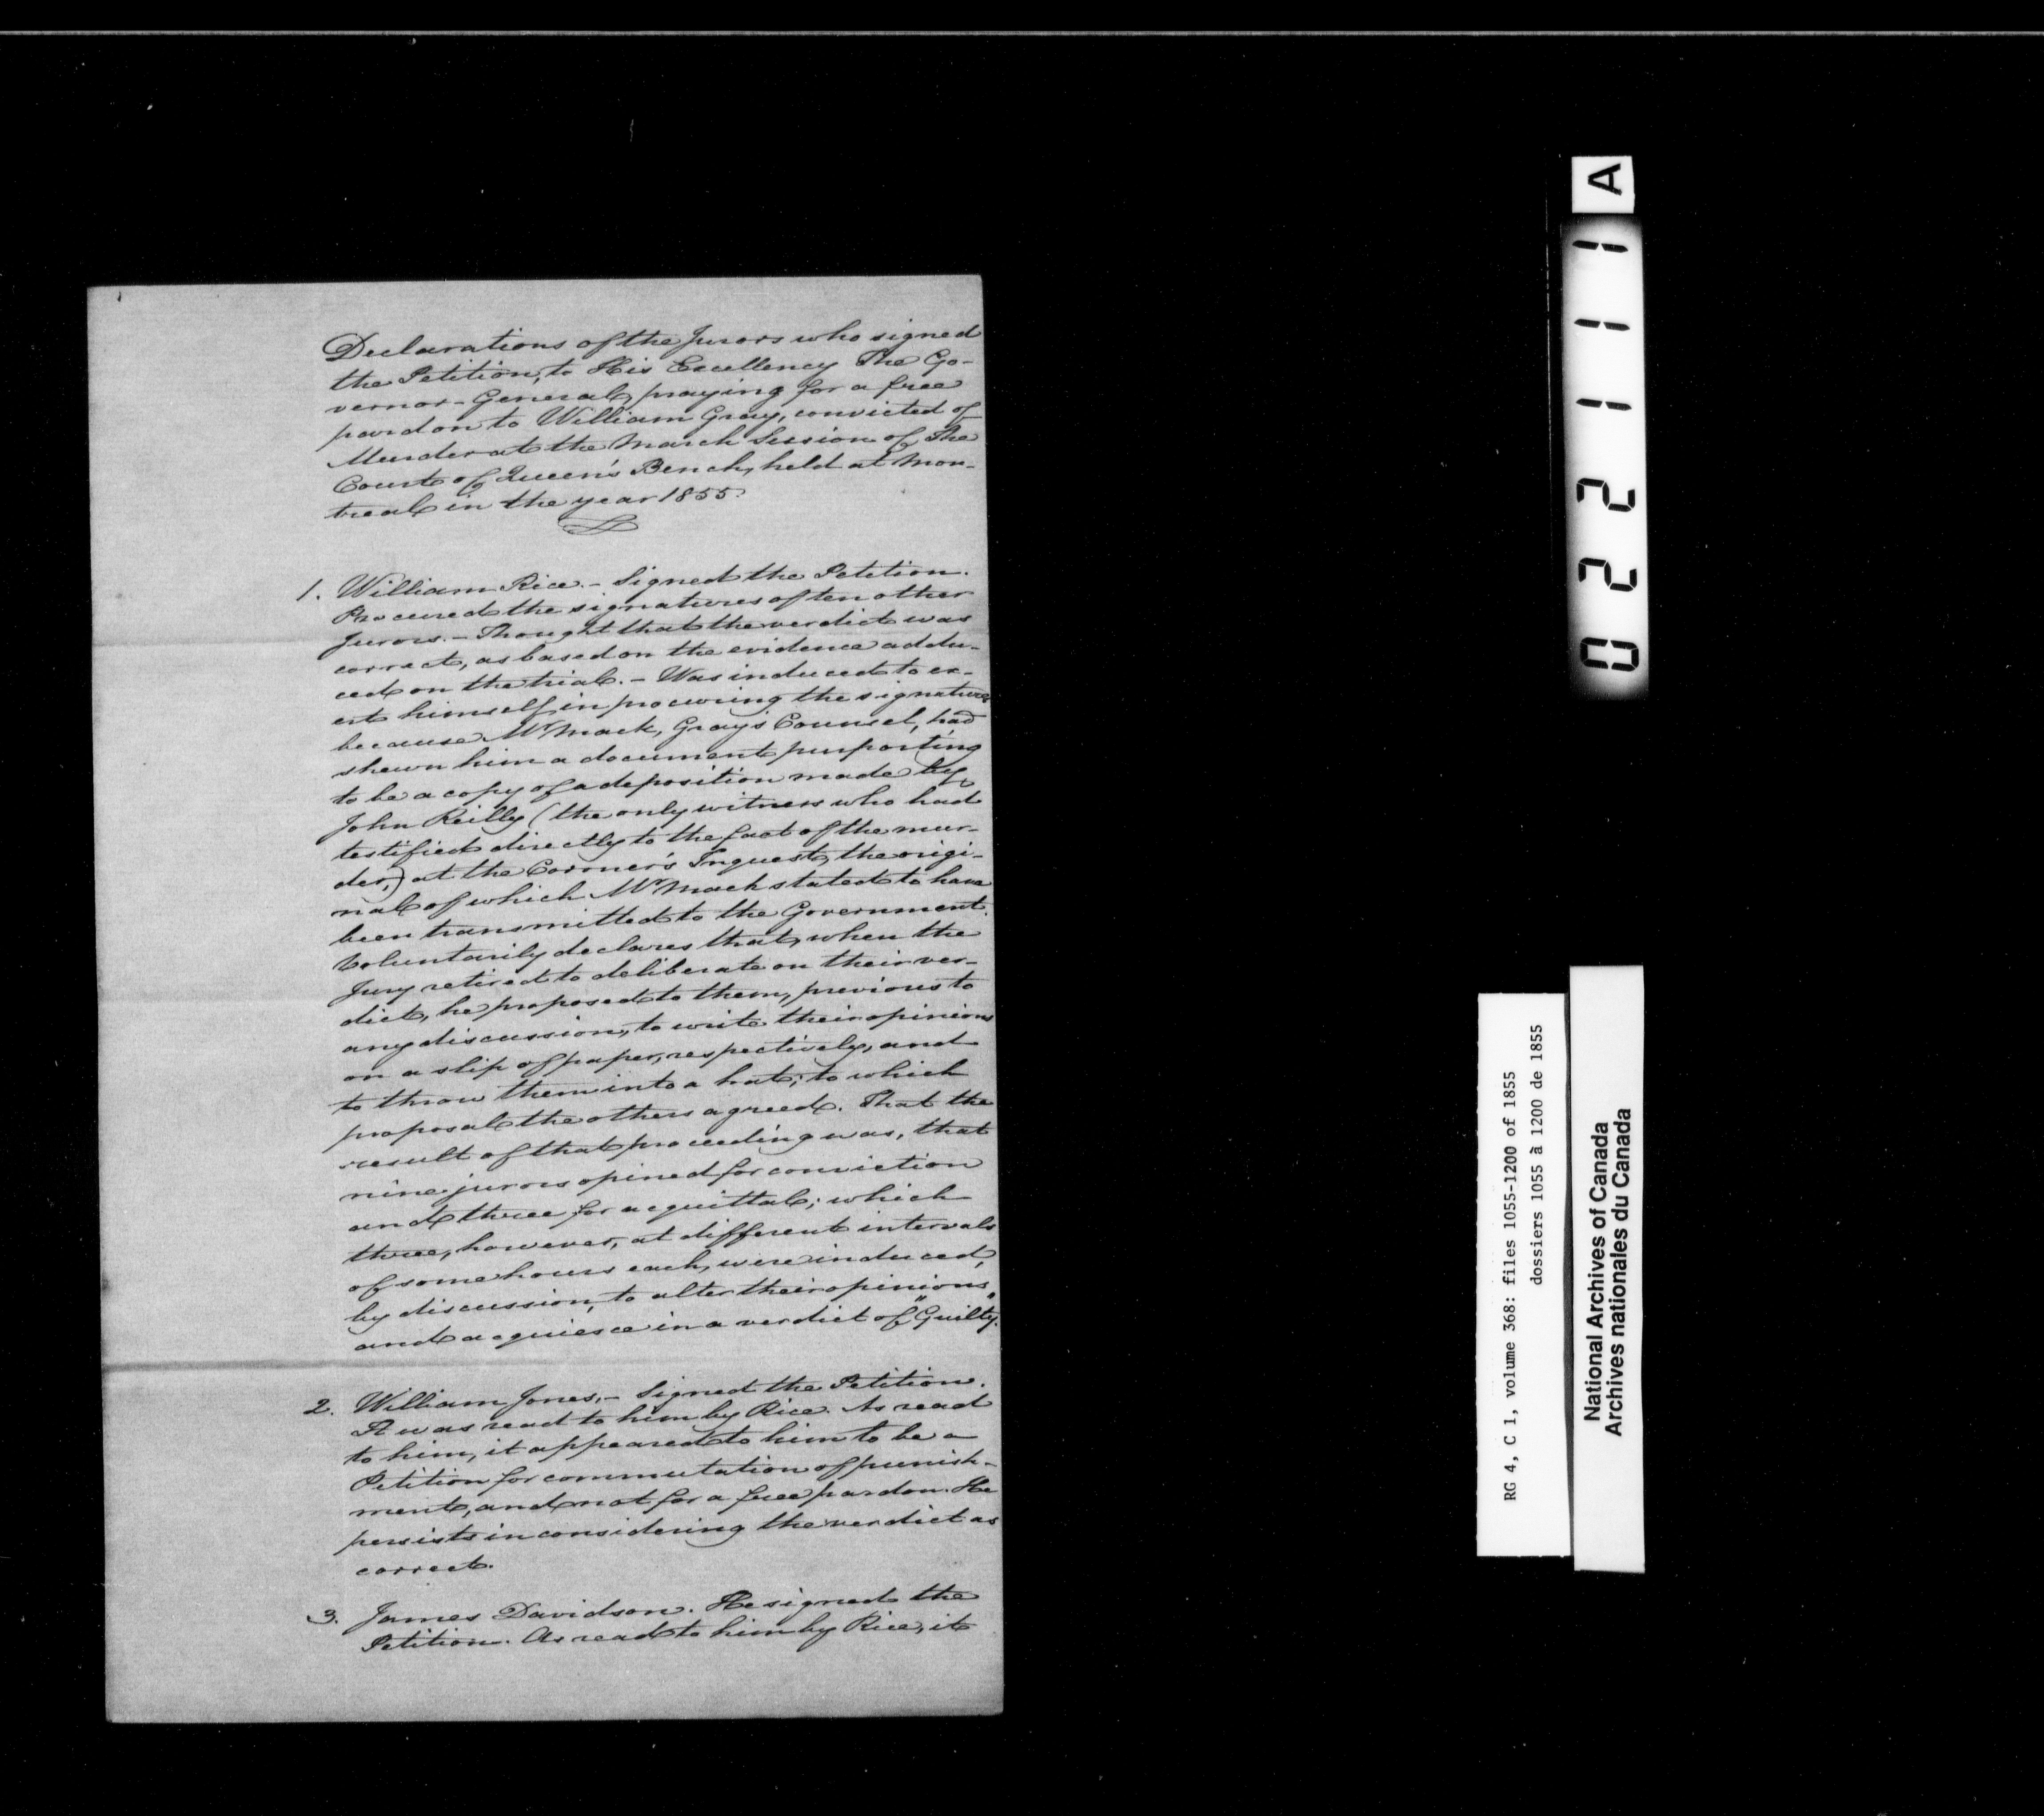 Declarations of the Jurors who signed
the Petition, to His Excellency The Go-
vernor-General, praying for a free
pardon to William Gray, convicted of
Murder at the March Session of The
Court of Queen's Bench, held at Mon-
treal in the year 1855.
1. William Rice. - Signed the Petition.
Procured the signatures of ten other
Jurors. - Thought that the verdict was
correct, as based on the evidence addu-
ced on the trial. - Was induced to ex-
ert himself in procuring the signatures
because Mr Mack, Gray's Counsel, had
shewn him a document purporting
to be a copy of a deposition made by
John Reilly (the only witness who had
testified directly to the fact of the mur-
der,) at the Coroner's Inquest, the origi-
nal of which Mr Mack stated to have
been transmitted to the Government.
Voluntarily declares that, when the
Jury retired to deliberate on their ver-
dict, he proposed to them, previous to
any discussion, to write their opinions
on a slip of paper, respectively, and
to throw them into a hat; to which
proposal the others agreed. That the
result of that proceeding was, that
nine jurors opined for conviction
and three for acquittal; which
three, however, at different intervals
of some hours each, were induced,
by discussion, to alter their opinions
and acquiesce in a verdict of "Guilty."
2. William Jones. - Signed the Petition.
It was read to him by Rice. As read
to him, it appeared to him to be a
Petition for commutation of punish-
ment, and not for a free pardon. He
persists in considering the verdict as
correct.
3. James Davidson. He signed the
Petition. As read to him by Rice, it
022111 A
RG 4, C 1, volume 368: files 1055-1200 of 1855
dossiers 1055 à 1200 de 1855
National Archives of Canada
Archives nationales du Canada